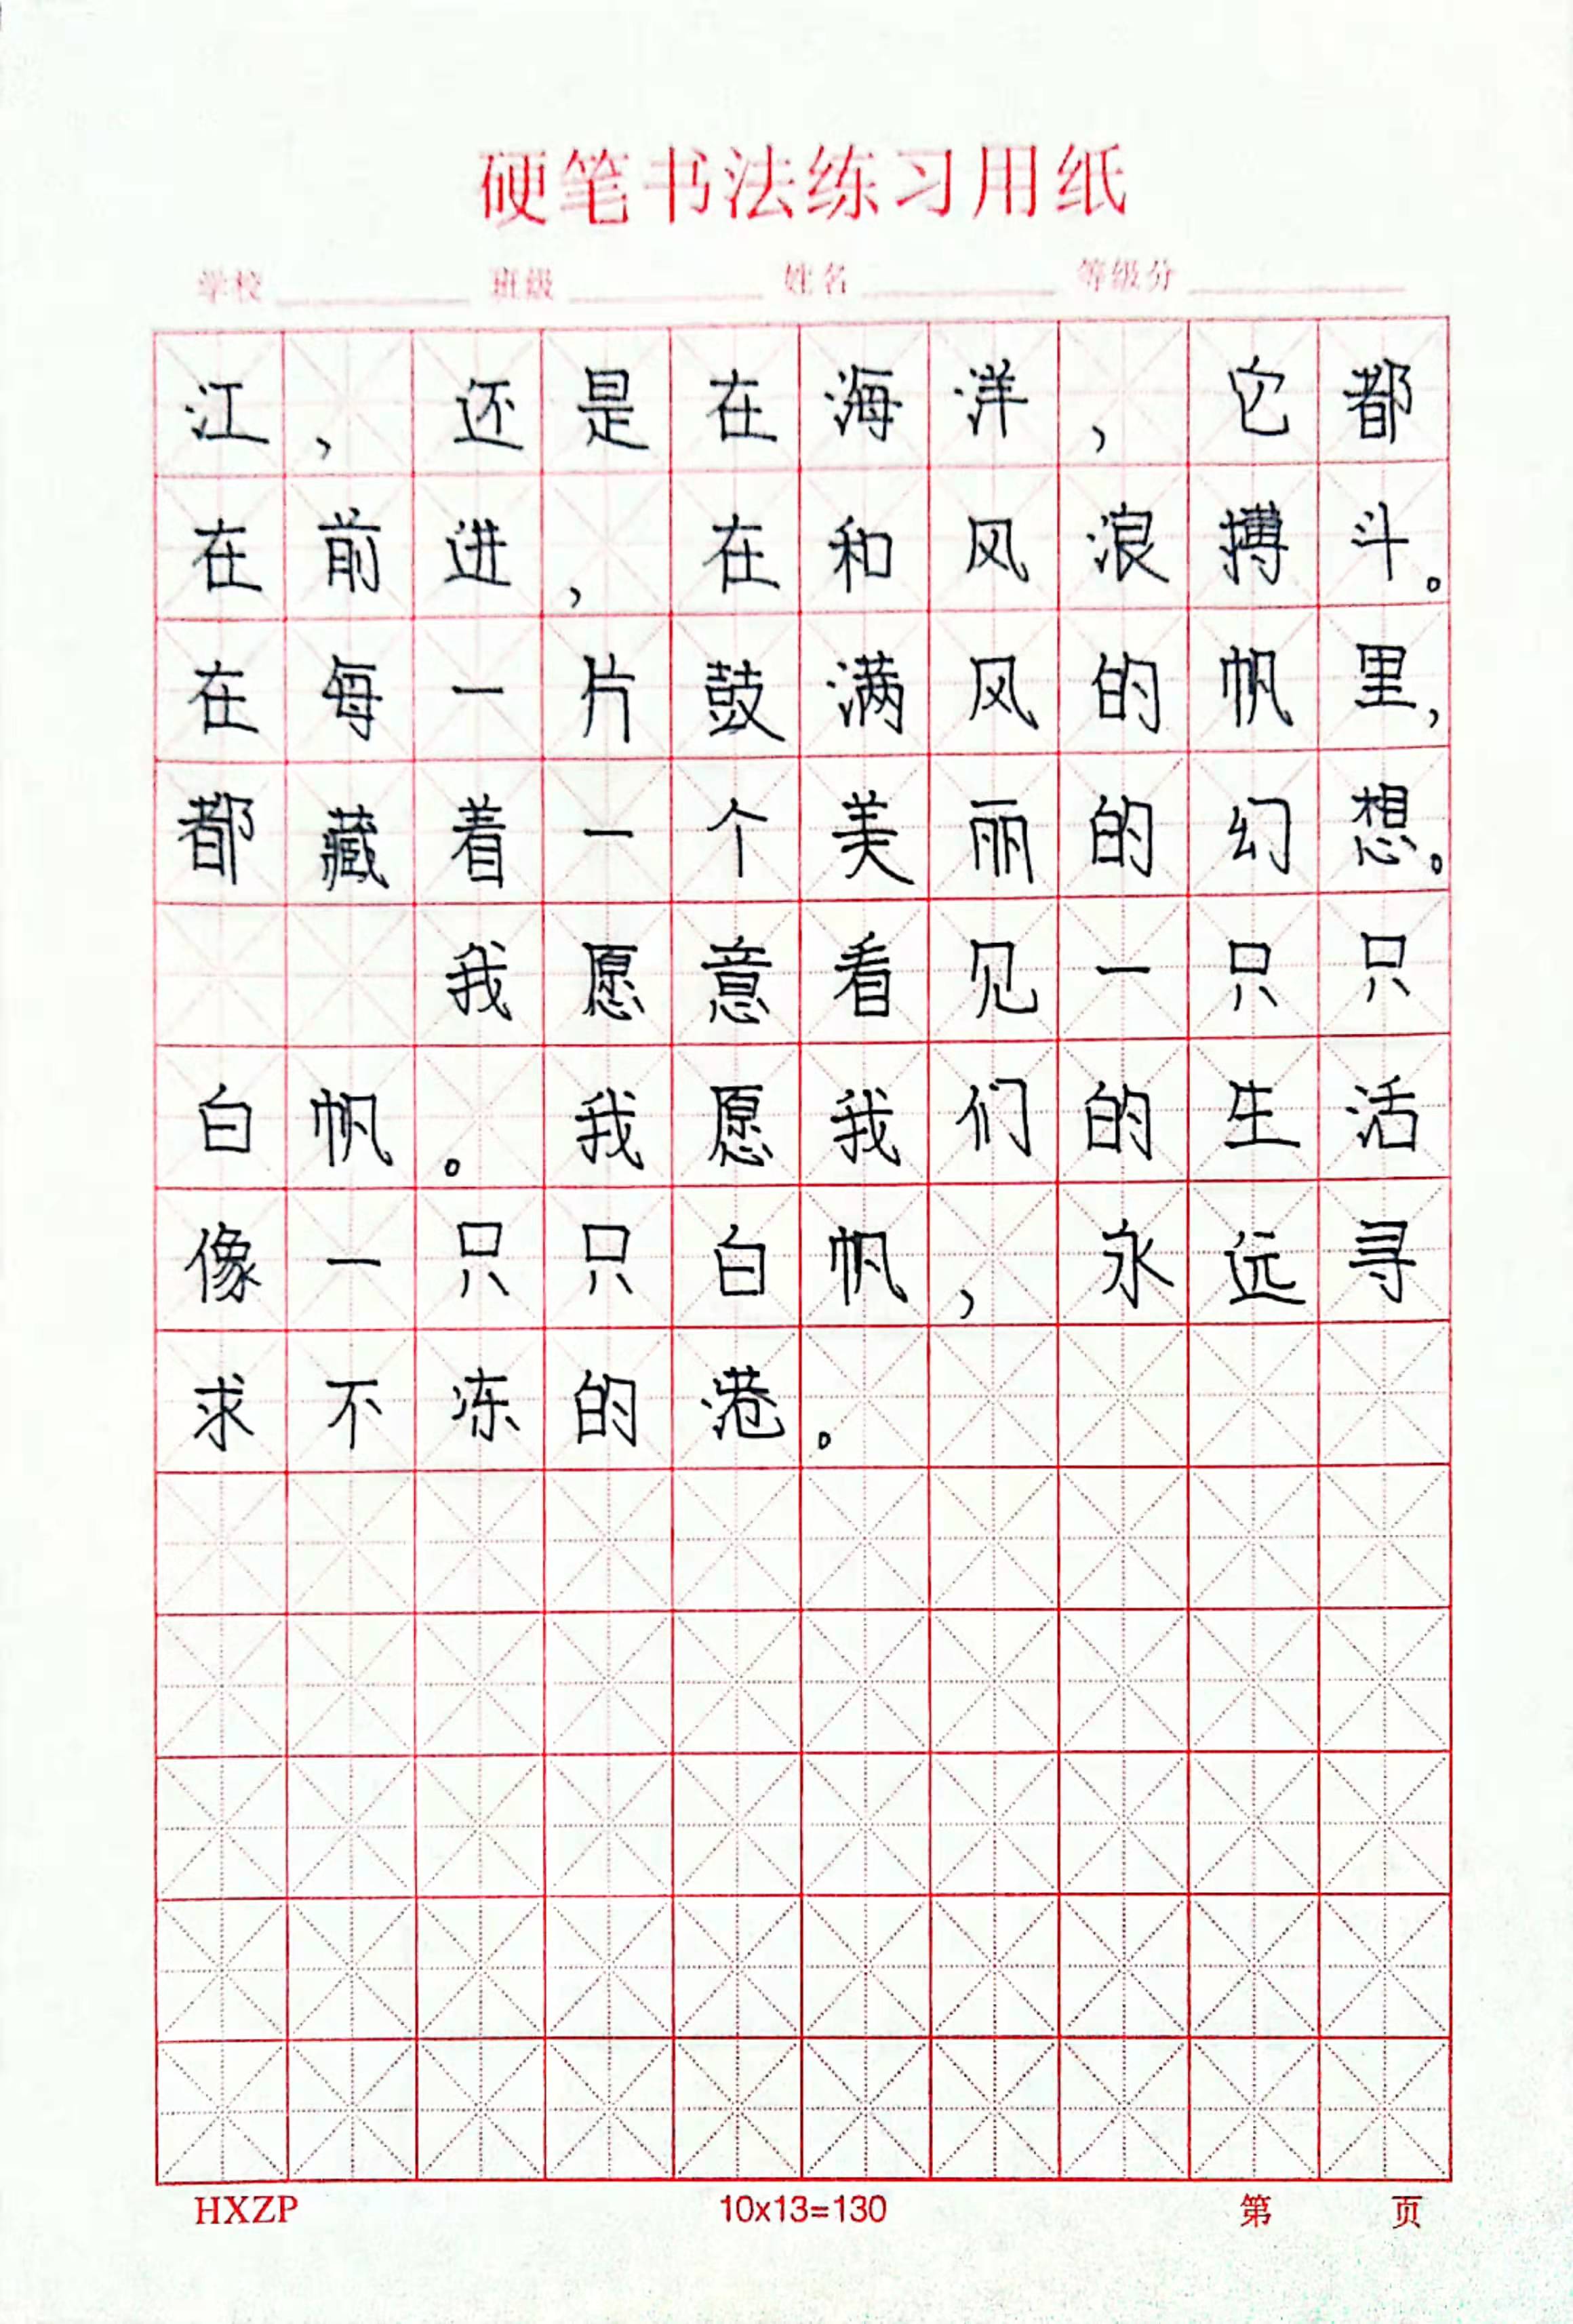 硬笔书法练习用纸
学校 班级 姓名 等级分
江，还是在海洋，它都
在前进，在和风浪搏斗。
在每一片鼓满风的帆里，
都藏着一个美丽的幻想。
我愿意看见一只只
白帆。我愿我们的生活
像一只只白帆，永远寻
求不冻的港。
HXZP 10x13=130 第 页